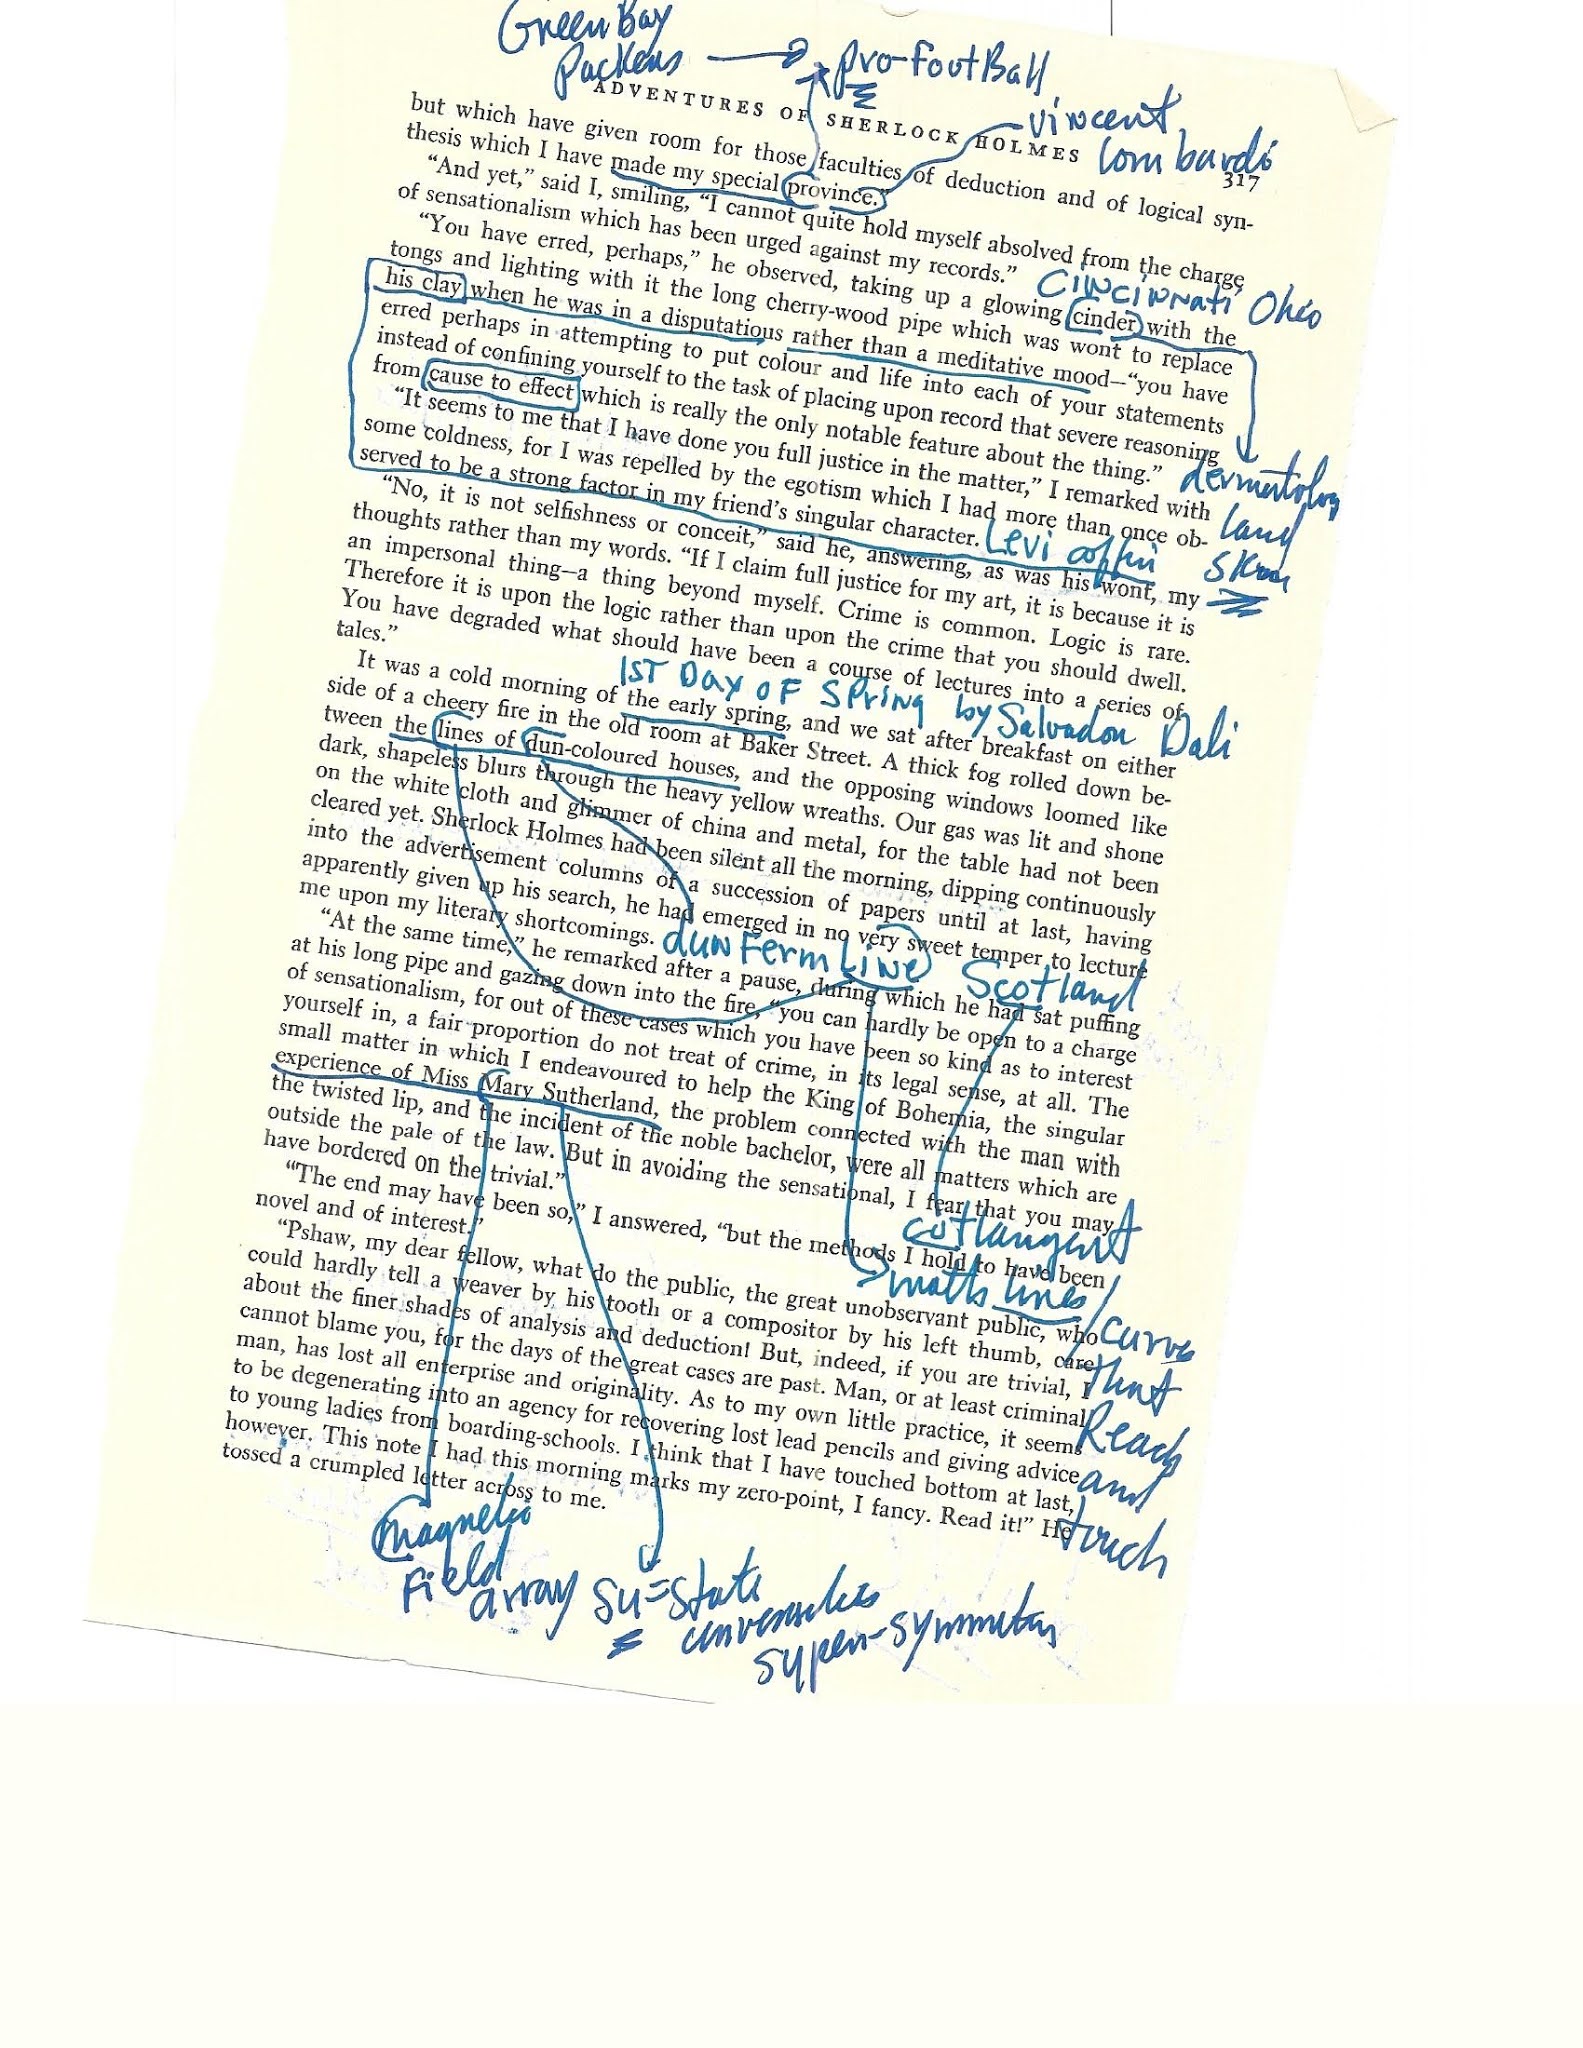 Green Bay
Packers → pro-FootBall
ADVENTURES OF SHERLOCK HOLMES 317
vincent
Lombardi
but which have given room for those faculties of deduction and of logical syn-
thesis which I have made my special province.”
“And yet,” said I, smiling, “I cannot quite hold myself absolved from the charge
of sensationalism which has been urged against my records.”
Cincinnati Ohio
“You have erred, perhaps,” he observed, taking up a glowing cinder with the
tongs and lighting with it the long cherry-wood pipe which was wont to replace
his clay when he was in a disputatious rather than a meditative mood—“you have
erred perhaps in attempting to put colour and life into each of your statements
instead of confining yourself to the task of placing upon record that severe reasoning
from cause to effect which is really the only notable feature about the thing.”
“It seems to me that I have done you full justice in the matter,” I remarked with
some coldness, for I was repelled by the egotism which I had more than once ob-
served to be a strong factor in my friend’s singular character.
Levi coffin
“No, it is not selfishness or conceit,” said he, answering, as was his wont, my
thoughts rather than my words. “If I claim full justice for my art, it is because it is
an impersonal thing—a thing beyond myself. Crime is common. Logic is rare.
Therefore it is upon the logic rather than upon the crime that you should dwell.
You have degraded what should have been a course of lectures into a series of
tales.”
1ST DAY OF SPRING by Salvador Dali
It was a cold morning of the early spring, and we sat after breakfast on either
side of a cheery fire in the old room at Baker Street. A thick fog rolled down be-
tween the lines of dun-coloured houses, and the opposing windows loomed like
dark, shapeless blurs through the heavy yellow wreaths. Our gas was lit and shone
on the white cloth and glimmer of china and metal, for the table had not been
cleared yet. Sherlock Holmes had been silent all the morning, dipping continuously
into the advertisement columns of a succession of papers until at last, having
apparently given up his search, he had emerged in no very sweet temper to lecture
me upon my literary shortcomings.
dunFermLine Scotland
“At the same time,” he remarked after a pause, during which he had sat puffing
at his long pipe and gazing down into the fire, “you can hardly be open to a charge
of sensationalism, for out of these cases which you have been so kind as to interest
yourself in, a fair proportion do not treat of crime, in its legal sense, at all. The
small matter in which I endeavoured to help the King of Bohemia, the singular
experience of Miss Mary Sutherland, the problem connected with the man with
the twisted lip, and the incident of the noble bachelor, were all matters which are
outside the pale of the law. But in avoiding the sensational, I fear that you may
have bordered on the trivial.”
“The end may have been so,” I answered, “but the methods I hold to have been
novel and of interest.”
“Pshaw, my dear fellow, what do the public, the great unobservant public, who
could hardly tell a weaver by his tooth or a compositor by his left thumb, care
about the finer shades of analysis and deduction! But, indeed, if you are trivial, I
cannot blame you, for the days of the great cases are past. Man, or at least criminal
man, has lost all enterprise and originality. As to my own little practice, it seems
to be degenerating into an agency for recovering lost lead pencils and giving advice
to young ladies from boarding-schools. I think that I have touched bottom at last,
however. This note I had this morning marks my zero-point, I fancy. Read it!” He
tossed a crumpled letter across to me.
cotlangent
math lines/
curve
that
Reach
and
touch
magnetic
Field
array
su=state
super-symmetry